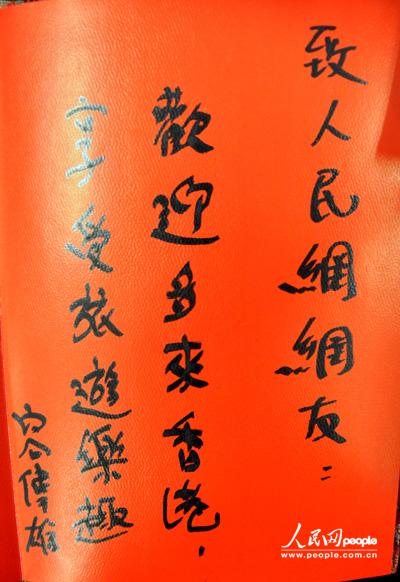 致人民網網友：
歡迎多來香港，
享受旅遊樂趣
容偉雄
人民网people
www.people.com.cn